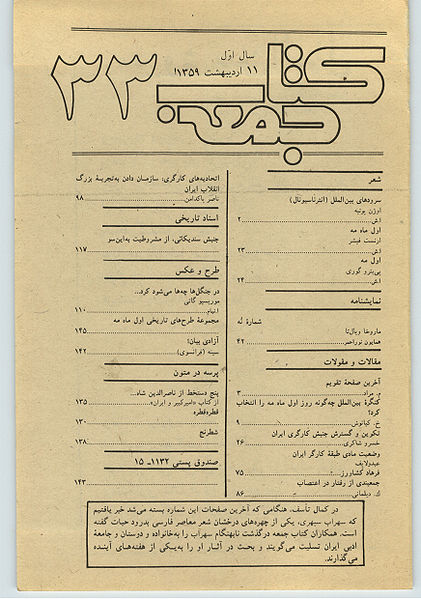 ۳۳
سال اوّل
۱۱ اردیبهشت ۱۳۵۹
کتاب جمعه
شعر
سرودهای بین‌الملل (انترناسیونال)
اوژن پوتیه
ا.ش ۲
اول ماه مه
ارنست فیشر
ا.ش ۲۳
اول مه
پی‌یترو گوری
ا.ش ۲۴
نمایشنامه
شمارهٔ نُه
ماروخا ویال‌تا
همایون نوراحمر ۴۲
مقالات و مقولات
آخرین صفحهٔ تقویم
م. مراد ۳
کنگرهٔ بین‌الملل چه‌گونه روز اول ماه مه را انتخاب
کرد؟
خ. کیانوش ۹
تکوین و گسترش جنبش کارگری ایران
خسرو شاکری ۲۶
وضعیت مادی طبقهٔ کارگر ایران
عبدلایف
فرهاد کشاورز ۷۵
جمعبندی از رفتار در اعتصاب
ک. دیلمانی ۸۶
اتحادیه‌های کارگری: سازمان دادن به‌تجربهٔ بزرگ
انقلاب ایران
ناصر پاکدامن ۹۸
اسناد تاریخی
جنبش سندیکائی، از مشروطیت به‌این‌سو
۱۱۷
طرح و عکس
در جنگل‌ها چه‌ها می‌شود کرد...
موریسیو گاتی
۱۱۰
مجموعهٔ طرح‌های تاریخی اول ماه مه
۱۴۵
آزادی بیان؛
سینه (فرانسوی) ۱۴۲
پرسه در متون
پنج دستخط از ناصرالدین شاه...
از کتاب «امیرکبیر و ایران» ۱۳۵
قطره‌قطره
۱۳۰
شطرنج
۱۳۸
صندوق پستی ۱۱۳۲ـ ۱۵
۱۴۳
در کمال تأسف، هنگامی که آخرین صفحات این شماره بسته می‌شد خبر یافتیم
که سهراب سپهری، یکی از چهره‌های درخشان شعر معاصر فارسی بدرود حیات گفته
است. همکاران کتاب جمعه درگذشت نابهنگام سهراب را به‌خانواده و دوستان و جامعهٔ
ادبی ایران تسلیت می‌گویند و بحث در آثار او را به‌یکی از هفته‌های آینده
می‌گذارند.